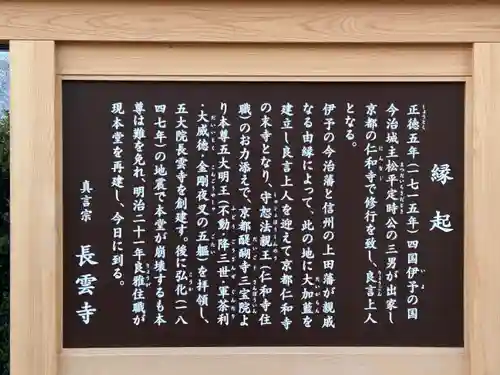 縁起
正徳五年(一七一五年)四国伊予の国
今治城主松平定時公の三男が出家し
京都の仁和寺で修行を致し、良言上人
となる。
伊予の今治藩と信州の上田藩が親戚
なる由縁によって、此の地に大加藍を
建立し良言上人を迎えて京都仁和寺
の末寺となり、守恕法親王(仁和寺住
職)のお力添えで、京都醍醐寺三宝院よ
り本尊五大明王(不動・降三世・軍荼利
・大威徳・金剛夜叉の五軀)を拝領し、
五大院長雲寺を創建す。後に弘化(一八
四七年)の地震で本堂が崩壊するも本
尊は難を免れ、明治二十一年良雅住職が
現本堂を再建し、今日に到る。
真言宗 長雲寺